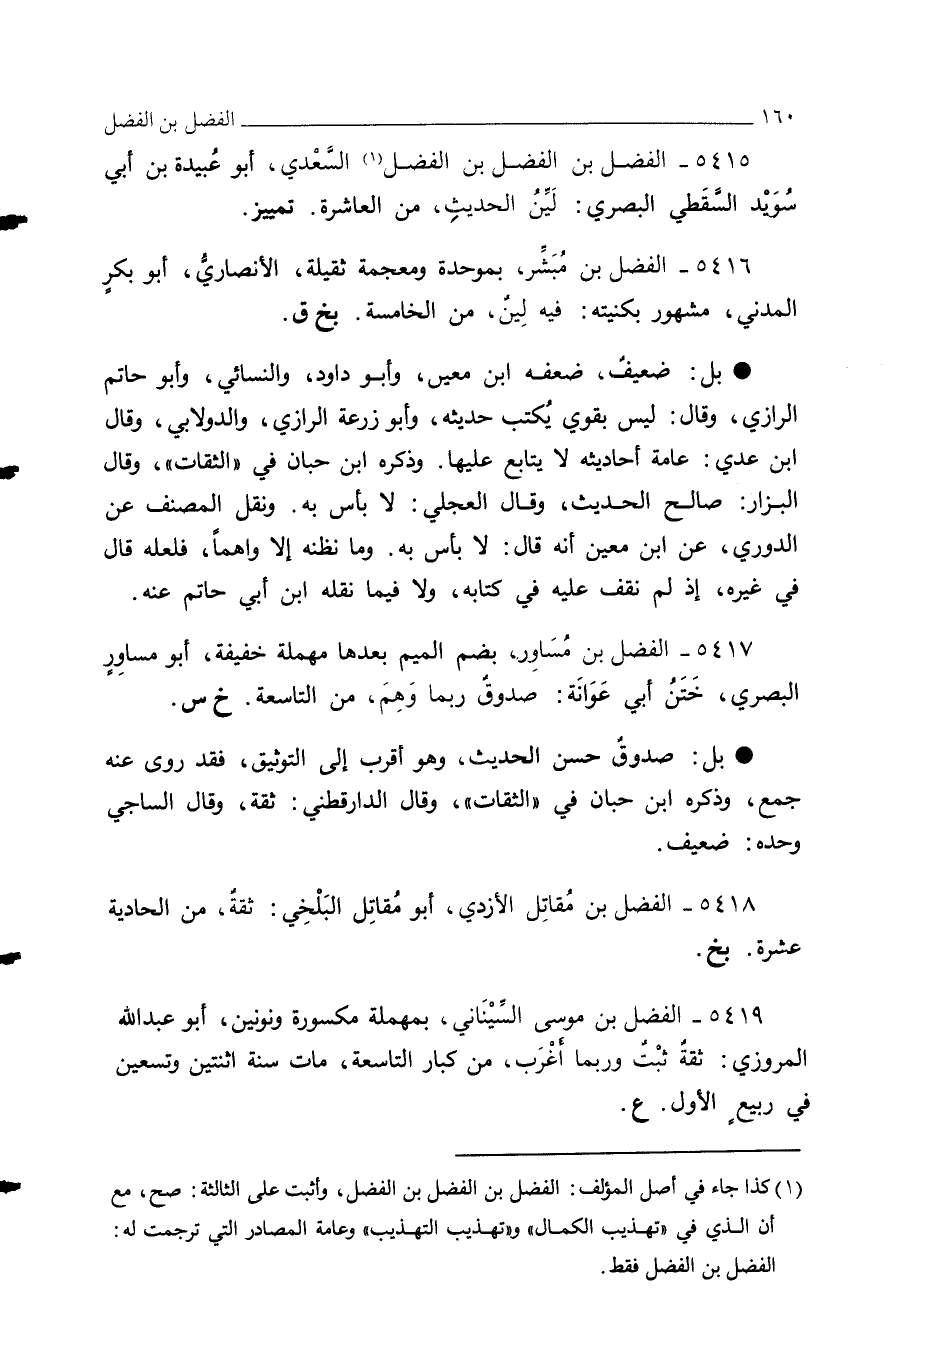 ١٦٠ الفضل بن الفضل
٥٤١٥ ـ الفضل بن الفضل بن الفضل(١) السَّعْدي، أبو عُبيدة بن أبي
سُوَيْد السَّقَطي البصري: لَيِّنُ الحديثِ، من العاشرة. تمييز.
٥٤١٦ ـ الفضل بن مُبَشِّر، بموحدة ومعجمة ثقيلة، الأنصاريُّ، أبو بكرٍ
المدني، مشهور بكنيته: فيه لِينٌ، من الخامسة. بخ ق.
● بل: ضعيفٌ، ضعفه ابن معين، وأبو داود، والنسائي، وأبو حاتم
الرازي، وقال: ليس بقوي يُكتب حديثه، وأبو زرعة الرازي، والدولابي، وقال
ابن عدي: عامة أحاديثه لا يتابع عليها. وذكره ابن حبان في «الثقات»، وقال
البزار: صالح الحديث، وقال العجلي: لا بأس به. ونقل المصنف عن
الدوري، عن ابن معين أنه قال: لا بأس به. وما نظنه إلا واهماً، فلعله قال
في غيره، إذ لم نقف عليه في كتابه، ولا فيما نقله ابن أبي حاتم عنه.
٥٤١٧ ـ الفضل بن مُسَاوِر، بضم الميم بعدها مهملة خفيفة، أبو مساوِرٍ
البصري، خَتَنُ أبي عَوَانَة: صدوقٌ ربما وَهِمَ، من التاسعة. خ س.
● بل: صدوقٌ حسن الحديث، وهو أقرب إلى التوثيق، فقد روى عنه
جمع، وذكره ابن حبان في «الثقات»، وقال الدارقطني: ثقة، وقال الساجي
وحده: ضعيف.
٥٤١٨ ـ الفضل بن مُقاتِل الأزدي، أبو مُقاتِل البَلْخِي: ثقةٌ، من الحادية
عشرة. بخ.
٥٤١٩ ـ الفضل بن موسى السِّيْنَاني، بمهملة مكسورة ونونين، أبو عبدالله
المروزي: ثقةٌ ثبْتٌ وربما أَغْرَب، من كبار التاسعة، مات سنة اثنتين وتسعين
في ربيعٍ الأول. ع.
(١) كذا جاء في أصل المؤلف: الفضل بن الفضل بن الفضل، وأثبت على الثالثة: صح، مع
أن الذي في «تهذيب الكمال» و«تهذيب التهذيب» وعامة المصادر التي ترجمت له:
الفضل بن الفضل فقط.